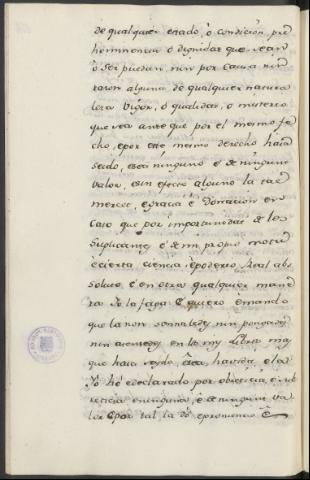 de qualquier estado, ó condición, pre
heminencia o dignidad que sean
ò ser puedan, nin por causa nin
razon alguna de qualquier natura
leza vigor, ò qualidad, o misterio
que sea ante que por el mesmo fe
cho, e por ese mesmo derecho haia
seido, e sea ninguno é de ningun
valor, e sin efecto alguno la tal
merced, e gracia é Donación en
Caso que por importunidad de los
Suplicantes é de mi propio motu
é cierta ciencia é poderio Real abs
soluto é en otra qualquier mane
ra de la faga É quiero e mando
que la non asentedes nin pongades
nin en los my Libros ma
que haia seydo, é sea havida e la
Yo hé e declarado por obrecicia, é sub
recicia e ninguna, é de ningun va
lor É por tal la dó e pronuncio É